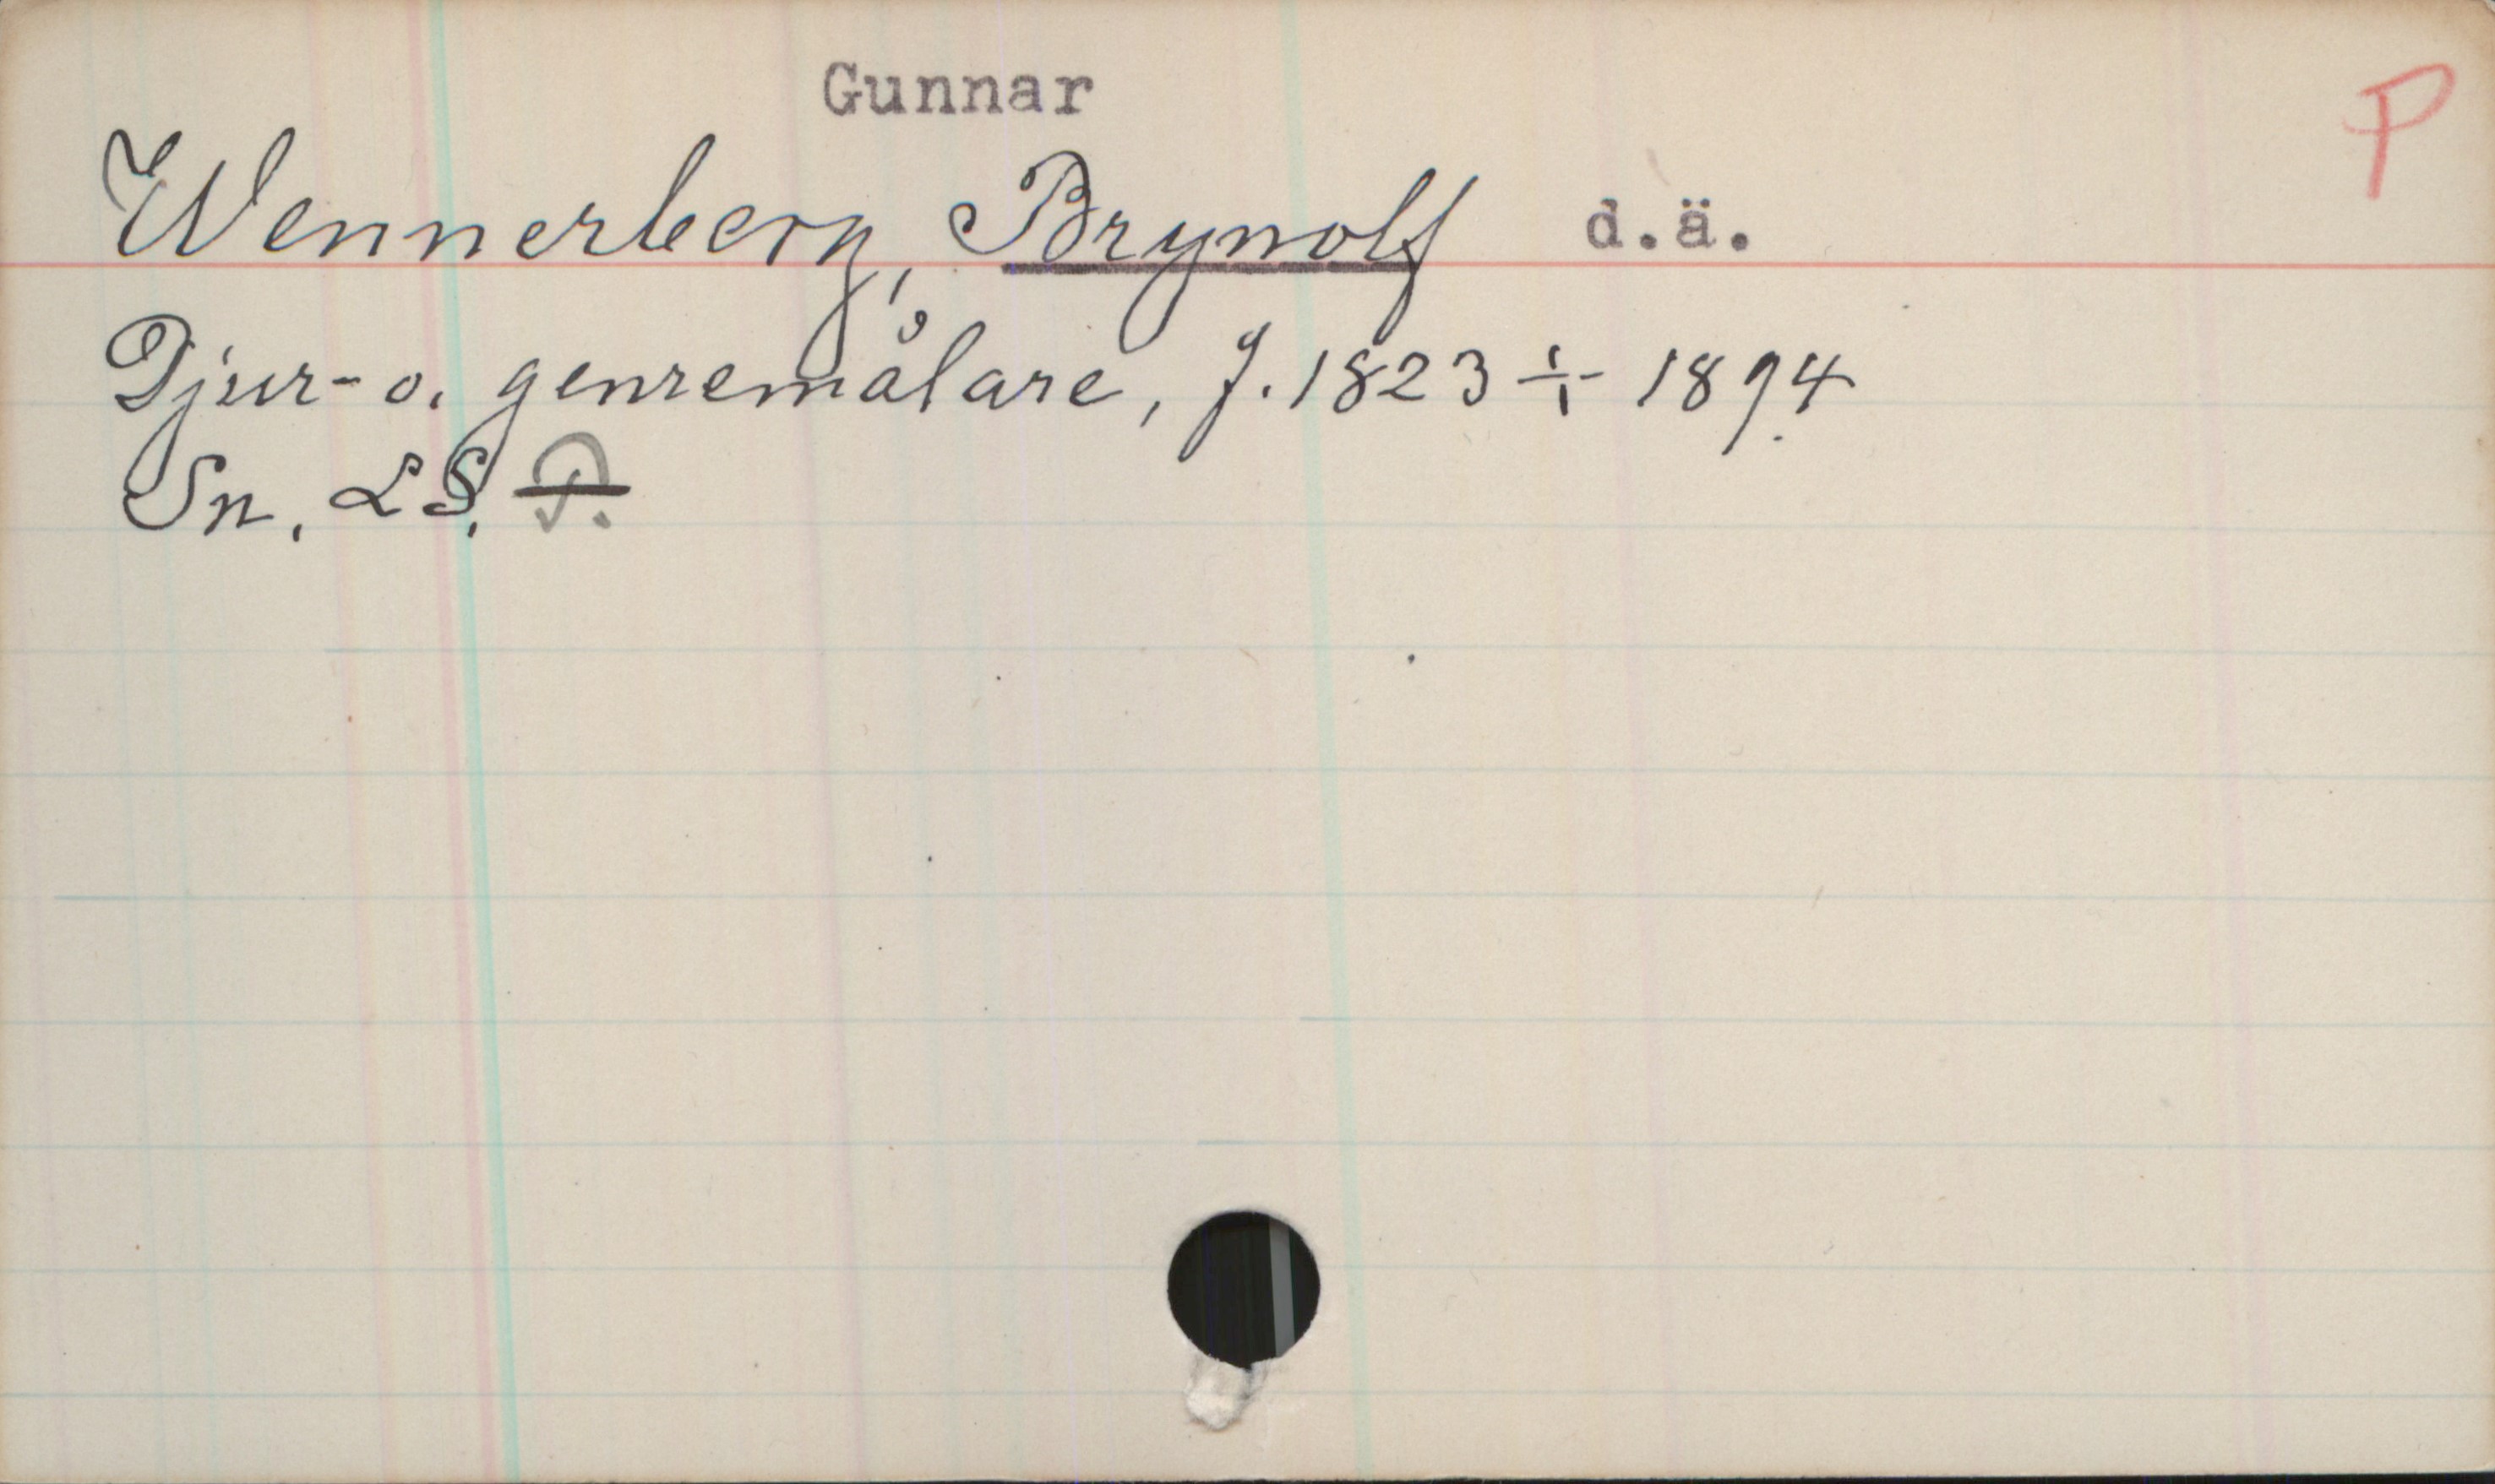 Gunnar
P
Wennerberg, Brynolf d.ä.
Djur- o. genremålare, f. 1823 ÷ 1894
Sn. LS.